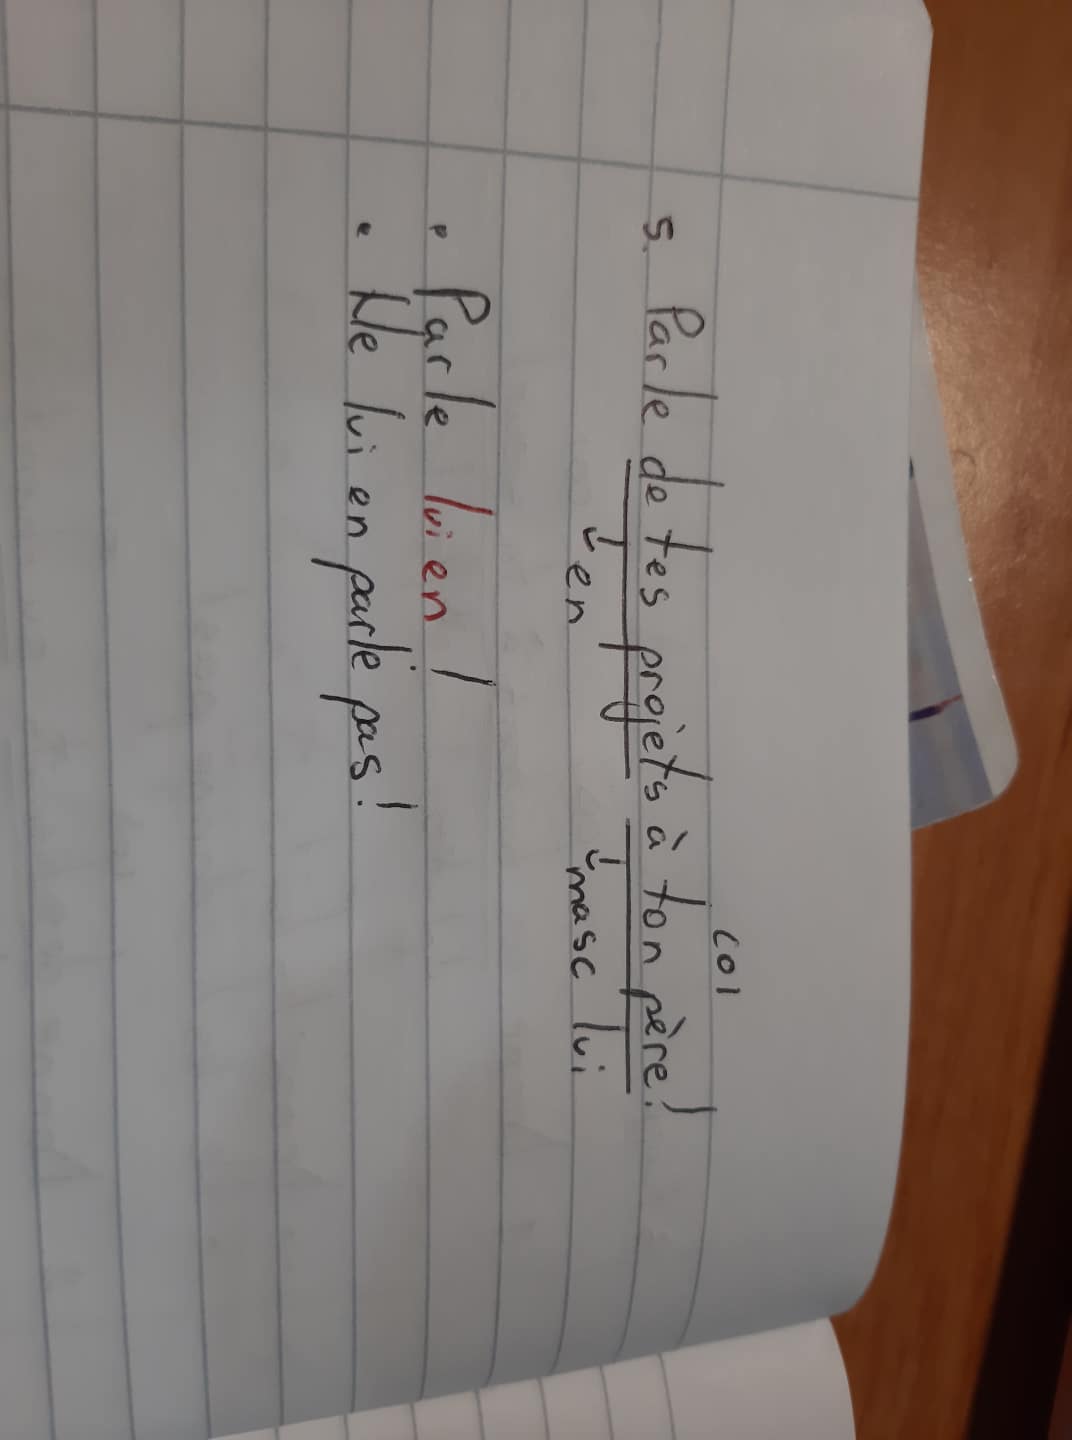 5. Parle de tes projets à ton père!
COI
↳ en
↳ masc lui
• Parle lui en !
• Ne lui en parle pas!